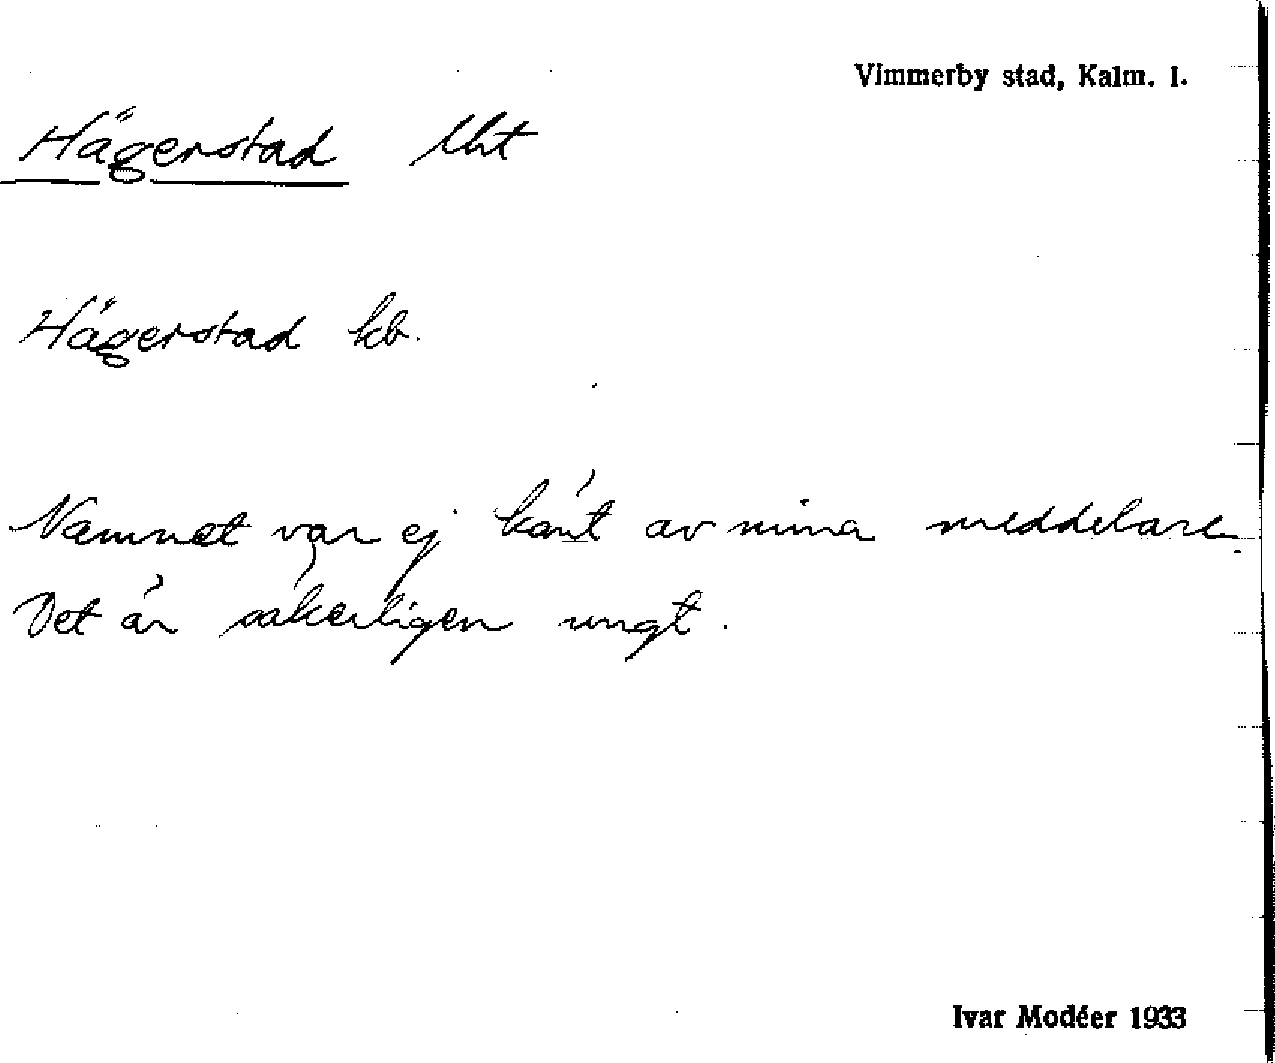 Vimmerby stad, Kalm. l.
Hägerstad lht
Hägerstad kb.
Namnet var ej känt av mina meddelare.
Det är säkerligen ungt.
Ivar Modéer 1933